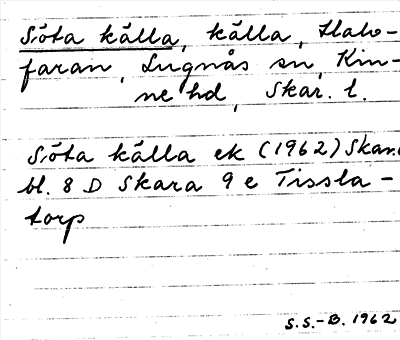 Söta källa, källa, Halo-
faran, Lugnås sn, Kin-
ne hd, Skar. l.
Söta källa ek (1962) Skar.
bl. 8 D Skara 9 e Tissla-
torp
S.S.-B. 1962